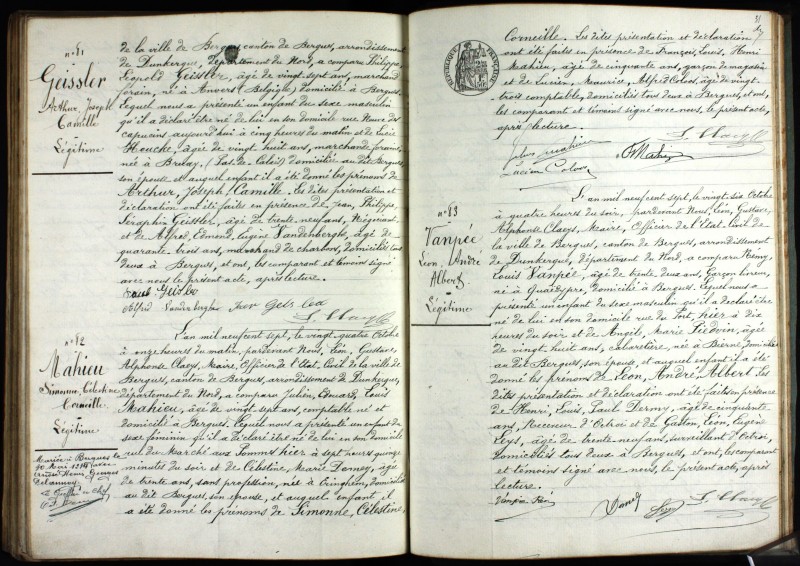 n° 81
Geissler
Arthur, Joseph
Camille
Légitime
de la ville de Bergues, canton de Bergues, arrondissement
de Dunkerque, département du Nord, a comparu Philippe
Léopold Geissler, âgé de vingt sept ans, marchand
forain, né à Anvers (Belgique), domicilié à Bergues
lequel nous a présenté un enfant du sexe masculin
qu'il a déclaré être né de lui en son domicile rue Neuve des
capucins aujourd'hui à cinq heures du matin et de Lucie
Houcke, âgée de vingt huit ans, marchande foraine,
née à Bruay, (Pas de Calais) domiciliée au dit Bergues
son épouse et auquel enfant il a été donné les prénoms de
Arthur, Joseph, Camille. Les dites présentation et
déclaration ont été faites en présence de Jean, Philippe,
Séraphin Geissler, âgé de trente neuf ans, Négociant
et de Alfred, Edmond, Eugène Vandenberghe, âgé de
quarante trois ans, marchand de charbons, domiciliés tous
deux à Bergues, et ont, les comparant et témoins signé
avec nous le présent acte, après lecture.
n° 82
Mahieu
Simonne, Célestine
Corneille
Légitime
Mariée à Bergues le
Henri, Georges
Delannoy
L'an mil neuf cent sept, le vingt quatre Octobre
à onze heures du matin, pardevant Nous, Léon, Gustave,
Alphonse Claeys, Maire, Officier de l'Etat-Civil de la ville de
Bergues, canton de Bergues, arrondissement de Dunkerque,
département du Nord, a comparu Julien, Edouard, Louis
Mahieu, âgé de vingt sept ans, comptable né et
domicilié à Bergues. Lequel nous a présenté un enfant du
sexe féminin qu'il a déclaré être né de lui en son domicile
rue du Marché aux Pommes hier à sept heures quinze
minutes du soir et de Célestine, Marie Donney, âgée
de trente ans, sans profession, née à Cringhem, domiciliée
au dit Bergues, son épouse, et auquel enfant il
a été donné les prénoms de Simonne, Célestine,
51
Corneille. Les dites présentation et déclaration
ont été faites en présence de François, Louis, Henri
Mahieu, âgé de cinquante ans, garçon de magasin
et de Lucien, Maurice, Alfred Colous, âgé de vingt
trois comptable, domiciliés tous deux à Bergues, et ont,
les comparant et témoins signé avec nous, le présent acte,
après lecture.
n° 83
Vanpée
Léon, André
Albert
Légitime
L'an mil neuf cent sept, le vingt six Octobre
à quatre heures du soir, pardevant Nous, Léon, Gustave,
Alphonse Claeys, Maire, Officier de l'Etat-Civil de
la ville de Bergues, canton de Bergues, arrondissement
de Dunkerque, département du Nord, a comparu Rémy,
Louis Vanpée, âgé de trente deux ans, Garçon livreur,
né à Quaëdypre, domicilié à Bergues. Lequel nous a
présenté un enfant du sexe masculin qu'il a déclaré être
né de lui en son domicile rue du Port, hier à dix
heures du soir et de Angèle, Marie Liévin, âgée
de vingt huit ans, cabaretière, née à Bierne, domiciliée
au dit Bergues, son épouse, et auquel enfant il a été
donné les prénoms de Léon, André, Albert. Les
dites présentation et déclaration ont été faites en présence
de Henri, Louis, Paul Derny, âgé de cinquante
ans, Receveur d'Octroi et de Gaston, Léon, Eugène
Leys, âgé de trente neuf ans, surveillant d'Octroi,
domiciliés tous deux à Bergues, et ont, les comparant
et témoins signé avec nous, le présent acte, après
lecture.